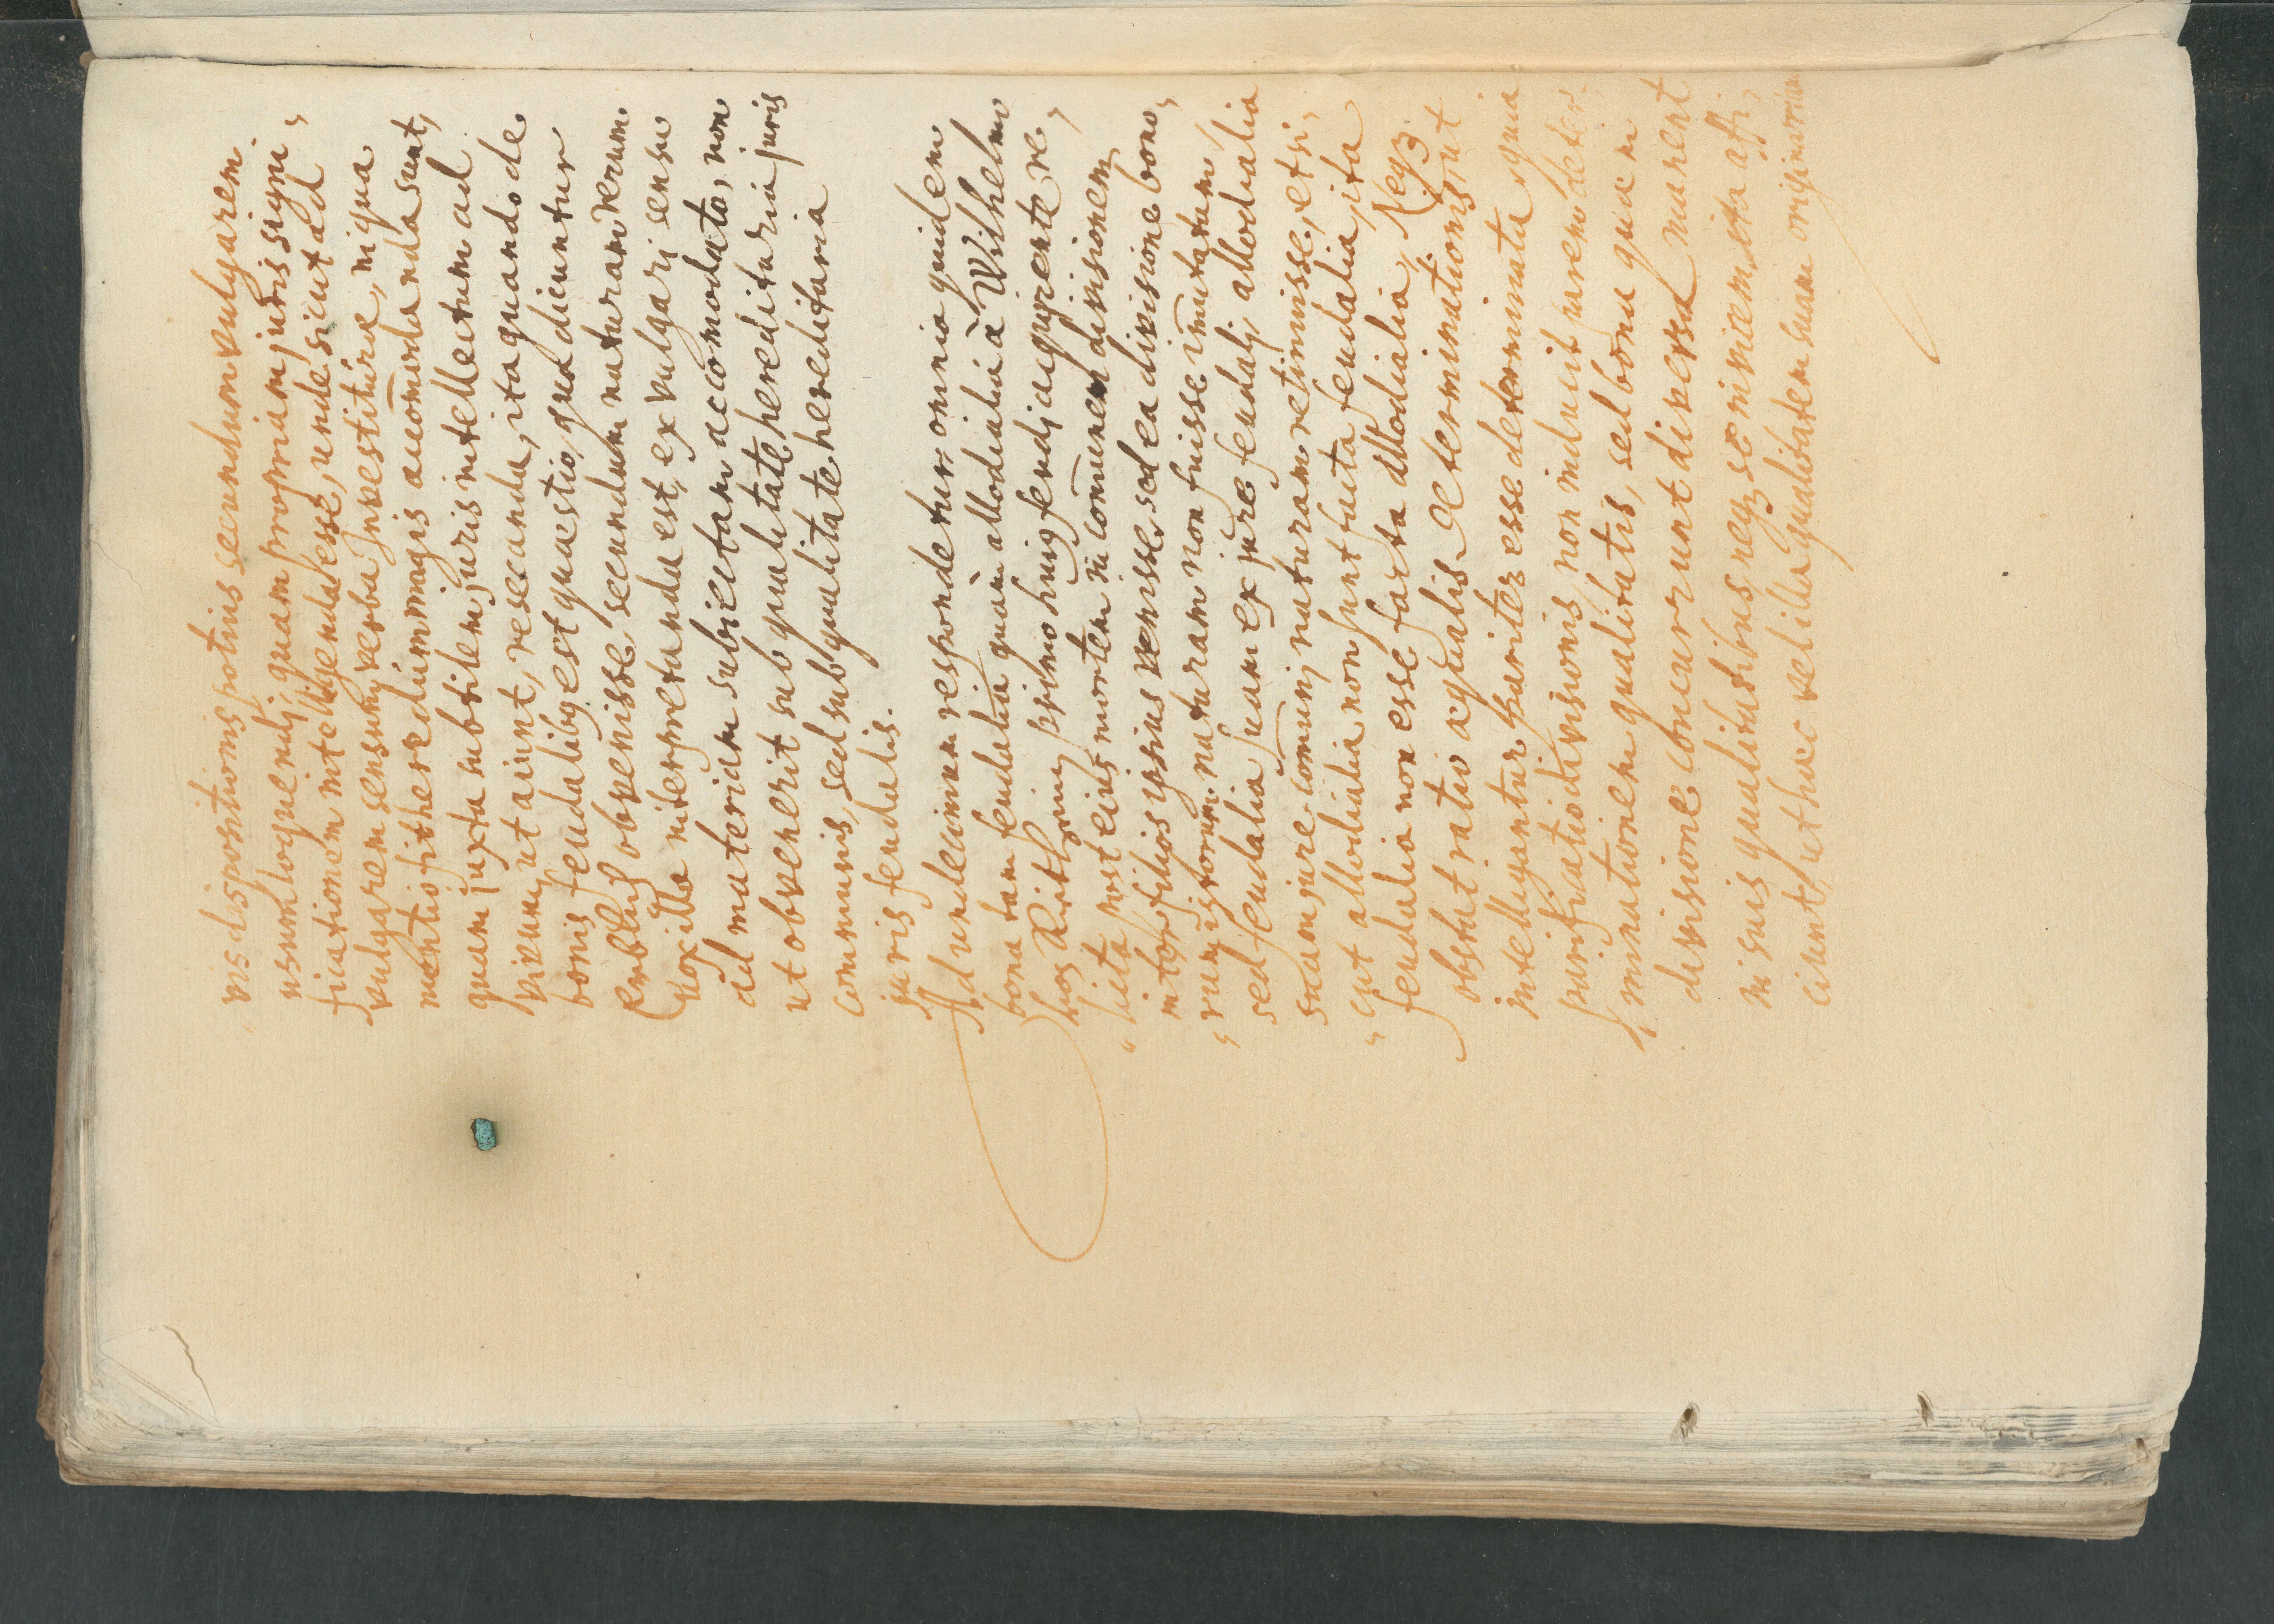 vis dispositionis potius secundum vulgarem
usum loquendj, quam propriam juris signi,
ficationem intelligenda esse, unde sicut ad
vulgarem sensum, verba Investiturae, in qua
mentio fit heredum magis accom̄odanda sunt,
quam juxta subtilem juris intellectum ad
vivum, ut aiunt, resecanda, ita quando de
bonis feudalibꝰ est quaestio, quae dicuntur
obvenisse secundum naturam rerum
vox illa interpretanda est, ex vulgarj sensu
ad materiam subiectam accomodato, non
ut obvenerit sub qualitate hereditaria juris
communis, sed sub qualitate hereditaria
juris feudalis.
Ad undecimum respondetur omnia quidem
bona tam feudalia quàm allodialia à Wilhelmo
primo huiꝰ feudj acquirente re,
licta post eius mortem in com̄unem divisionem
inter filios ipsius venisse, sed ea divisione bono,
rum istorum naturam non fuisse im̄utatam
sed feudalia suam ex jure feudalj, allodialia
suam jure com̄unj naturam retinuisse, et si,
cut allodialia non sunt facta feudalia, ita
feudalia non esse facta allodialia, Neqꝫ
obstat ratio aequalis determinationis, ut
intelligantur pariter esse determinata, quia
parificatio divisionis, non inducit parem deter,
minationem qualitatis, sed bona quae in
divisione concurrunt diversa, manent
in suis qualitatibus neqꝫ se invicem ita affi,
ciunt, ut haec vel illa qualitatem suam originariam